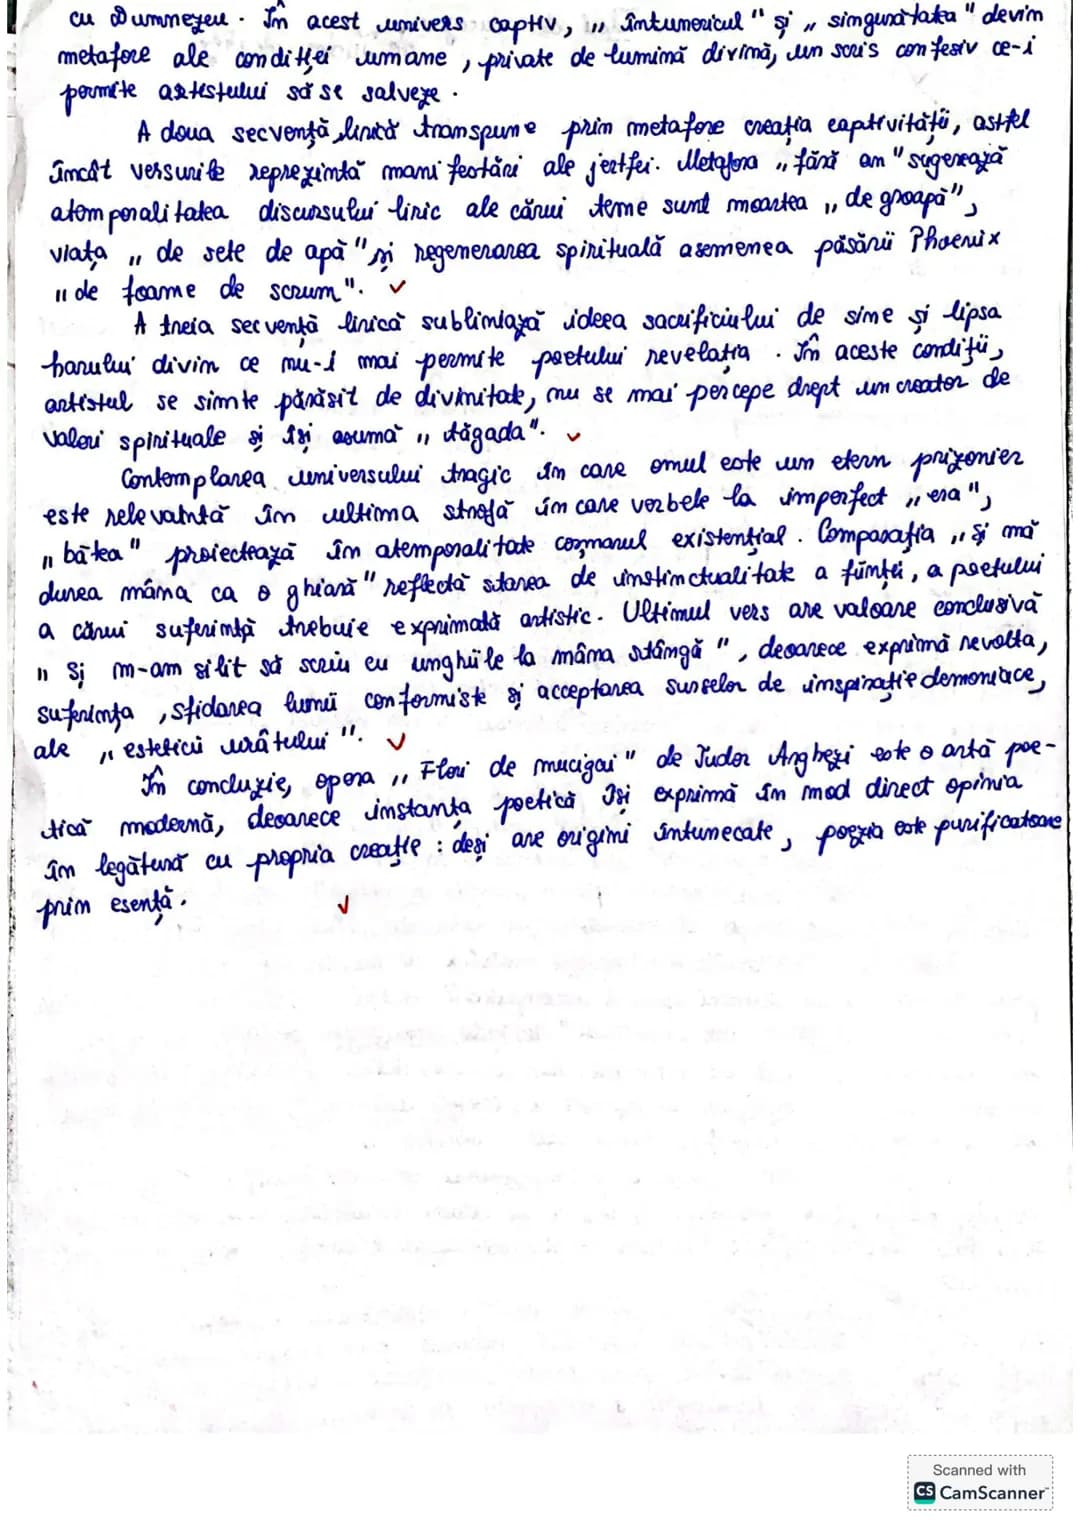 cu Dumnezeu. În acest univers captiv, „întunericul" și „singurătatea" devin
metafore ale condiției umane, private de lumină divină, un scris confesiv ce-i
permite artistului să se salveze.
A doua secvență lirică transpune prin metafore creația captivității, astfel
încât versurile reprezintă manifestări ale jertfei. Metafora „fără an" sugerează
atemporalitatea discursului liric ale cărui teme sunt moartea „de groapă",
viața „de sete de apă" și regenerarea spirituală asemenea păsării Phoenix
„de foame de scrum".
A treia secvență lirică sublimiază ideea sacrificiului de sine și lipsa
harului divin ce nu-i mai permite poetului revelația. În aceste condiții,
artistul se simte părăsit de divinitate, nu se mai percepe drept un creator de
valori spirituale și își asumă „tăgada".
Contemplarea universului tragic în care omul este un etern prizonier
este relevantă în ultima strofă în care verbele la imperfect „era",
„bătea" proiectează în atemporalitate coșmarul existențial. Comparația „Și mă
durea mâna ca o ghiară" reflectă starea de instinctualitate a ființei, a poetului
a cărui suferință trebuie exprimată artistic. Ultimul vers are valoare conclusivă
„Și m-am silit să scriu cu unghiile la mâna stângă", deoarece exprimă revolta,
suferința, sfidarea lumii conformiste și acceptarea surselor de inspirație demoniace,
ale „esteticii urâtului".
În concluzie, opera „Flori de mucigai" de Tudor Arghezi este o artă poe-
tică modernă, deoarece instanța poetică își exprimă în mod direct opinia
în legătură cu propria creație: deși are origini întunecate, poezia este purificatoare
prin esență.
Scanned with
CS CamScanner